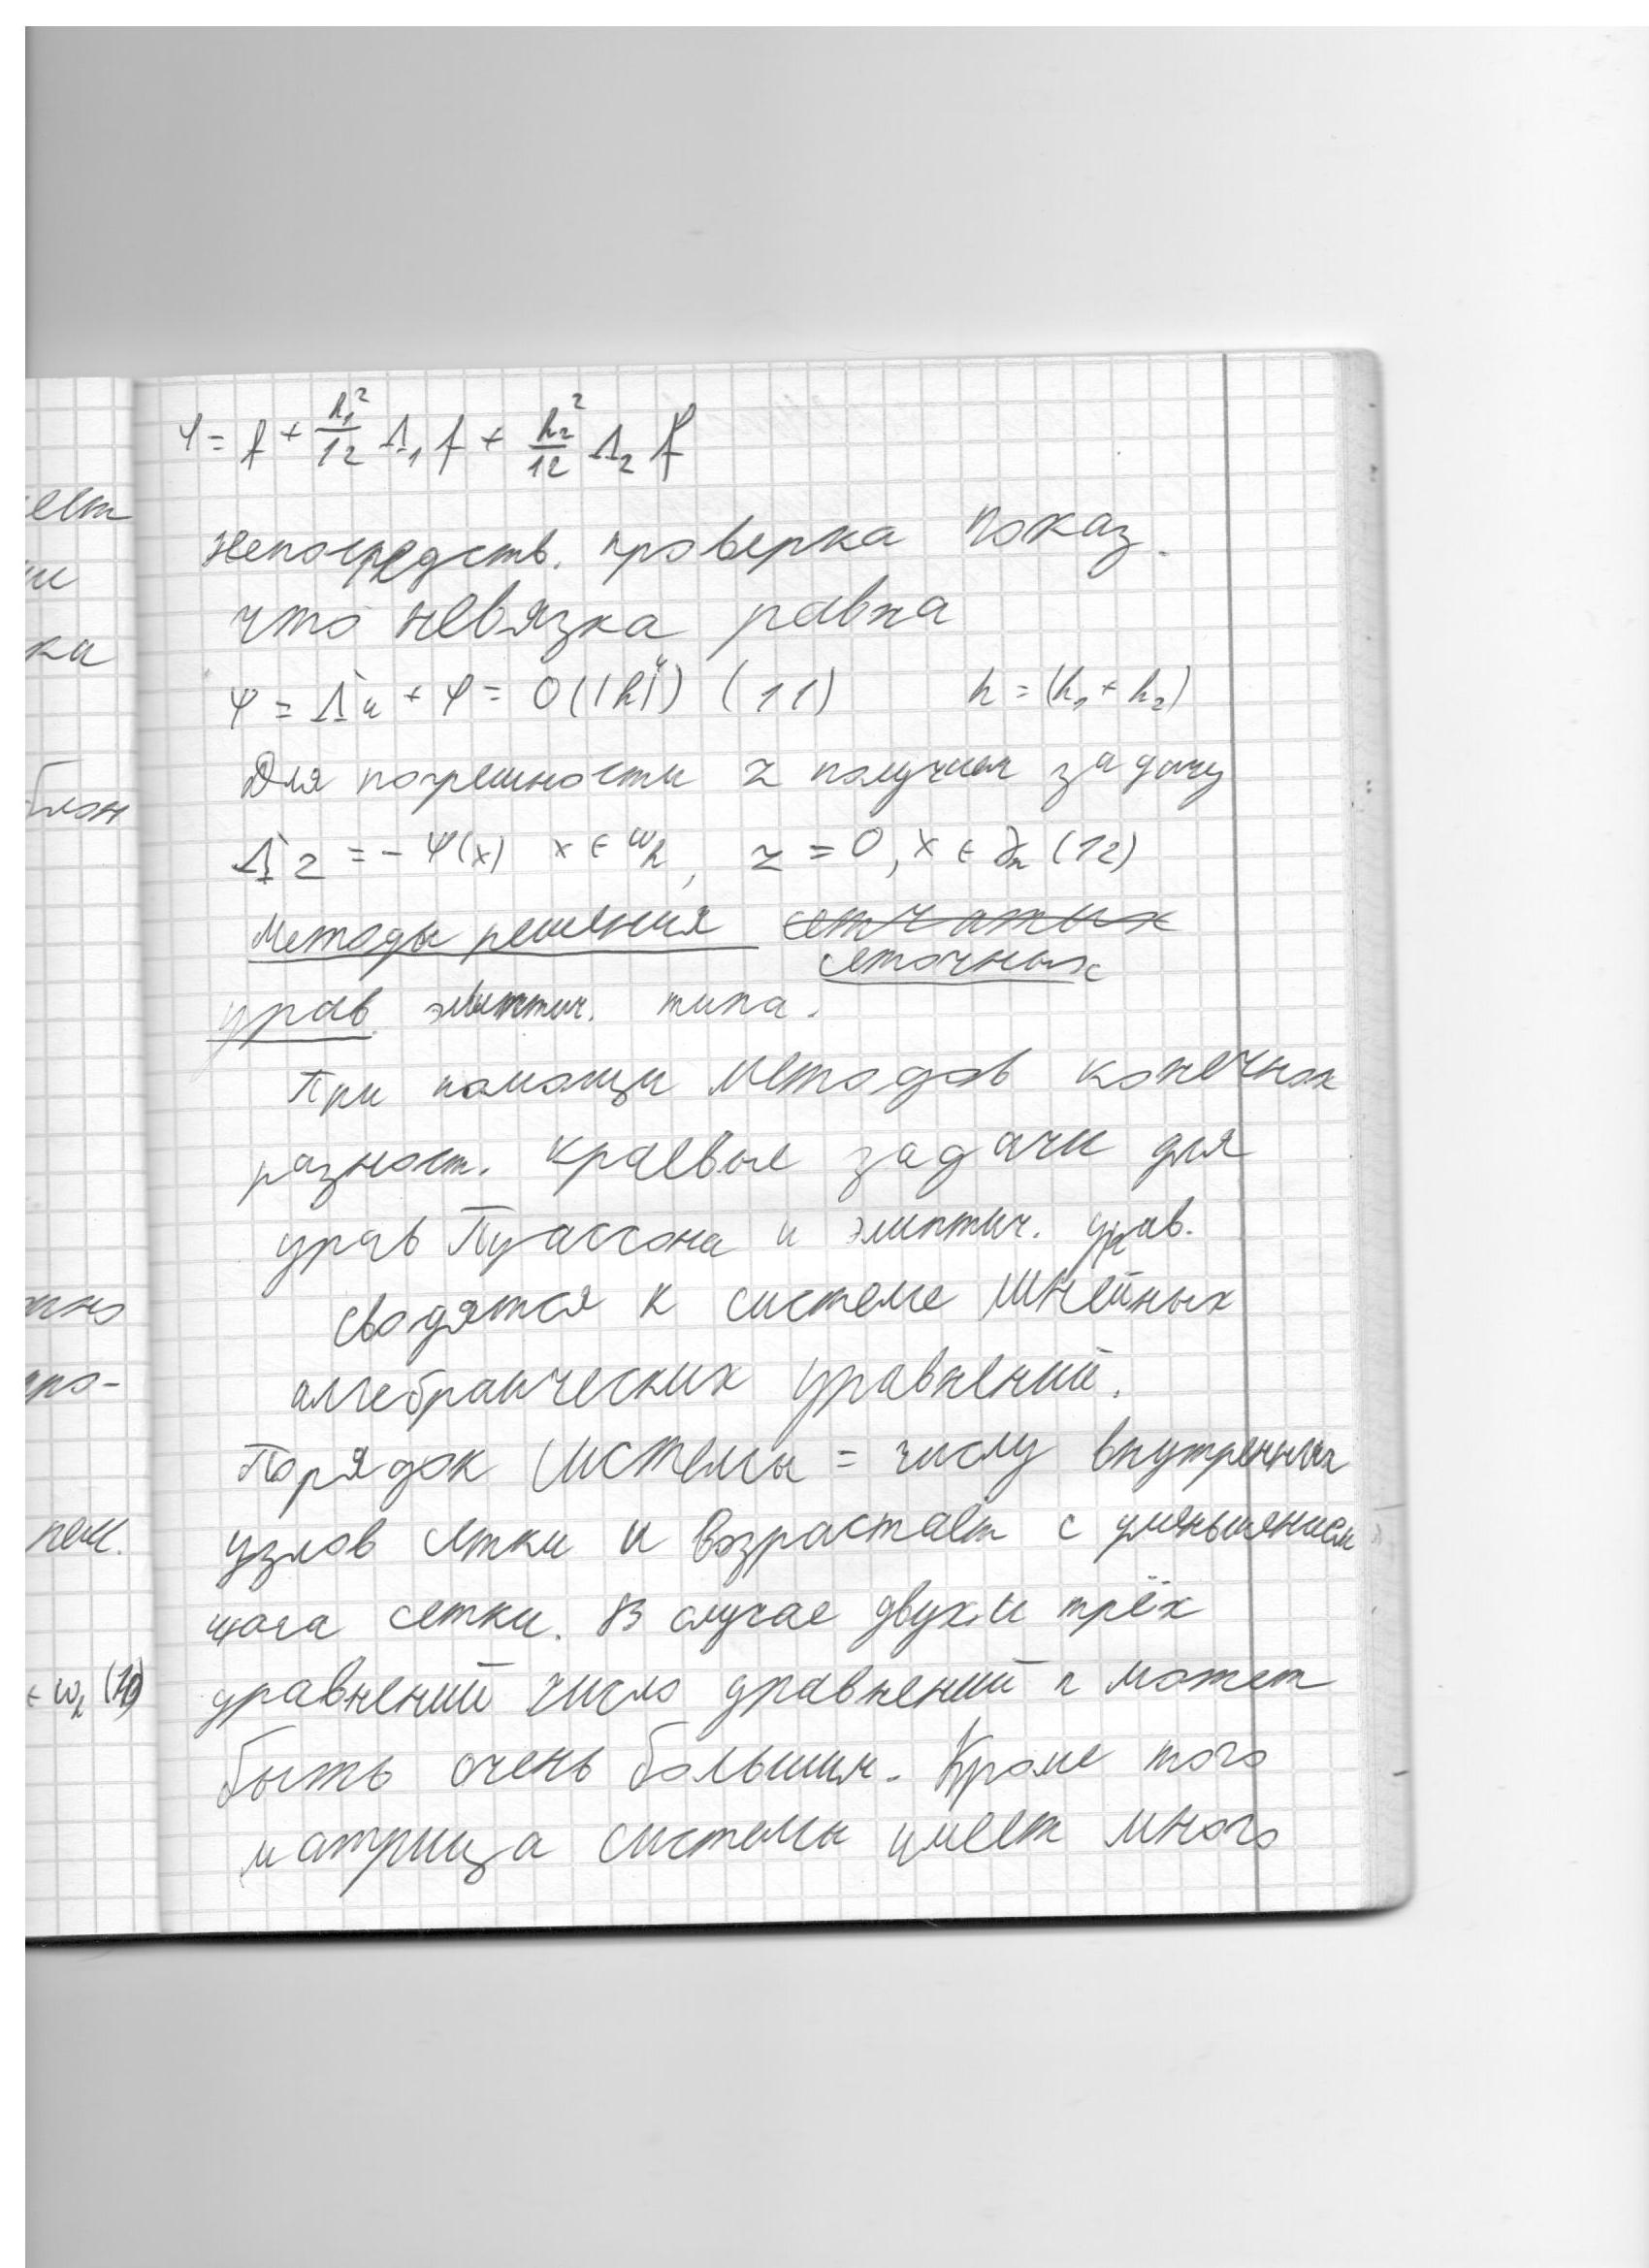 φ = f + h₁²/12 Λ₁ f + h₂²/12 Λ₂ f
непосредств. проверка показ.
что невязка равна
ψ = Λ'u + φ = O(|h|⁴) (11) h = (h₁ + h₂)
Для погрешности z получим задачу
Λ'z = - ψ(x) x ∈ ωh, z = 0, x ∈ γh (12)
Методы решения сетчатых
сеточных
урав. элиптич. типа.
При помощи методов конечных
разност. краевые задачи для
урав Пуассона и элиптич. урав.
сводятся к системе линейных
алгебраических уравнений.
Порядок системы = числу внутренних
узлов сетки и возрастает с уменьшением
шага сетки. В случае двух и трёх
уравнений число уравнений n может
быть очень большим. Кроме того
матрица системы имеет много
ка
блон
но
про-
∈ ωh (10)